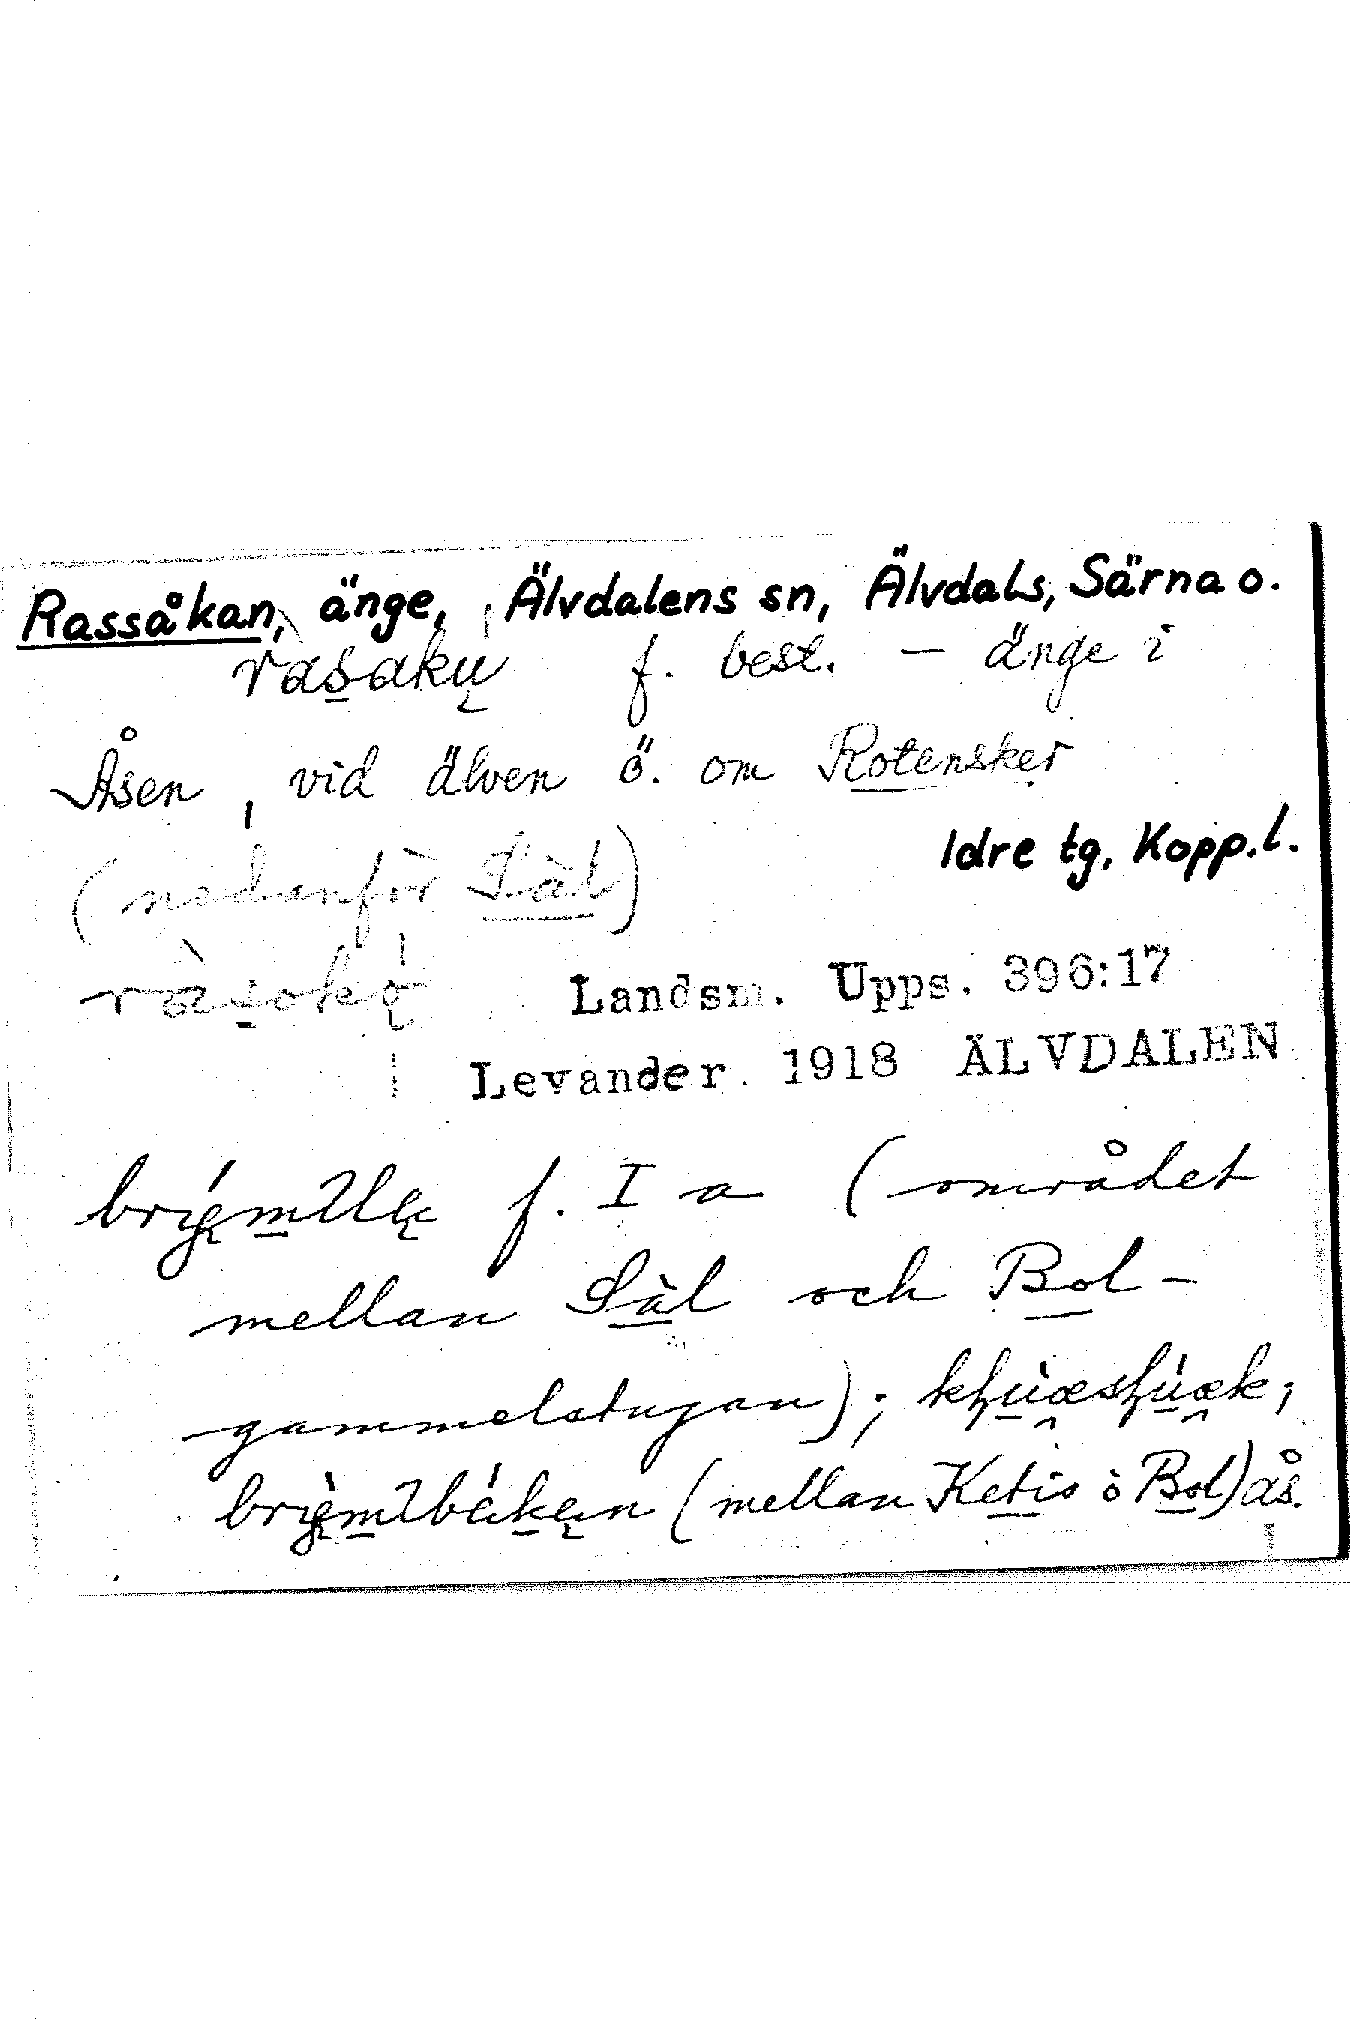 Rassåkan, änge, Älvdalens sn, Älvdals, Särna o.
ràsakų f. best. – änge i
Åsen, vid älven ö. om Rotensker
Idre tg, Kopp.l.
(nedanför Säl)
ràsoką
Landsm. Upps. 396:17
Levander 1918 ÄLVDALEN
f. I a (området
mellan Säl och Bol-
gammelstugan);
(mellan Ketis o Bol) ås.